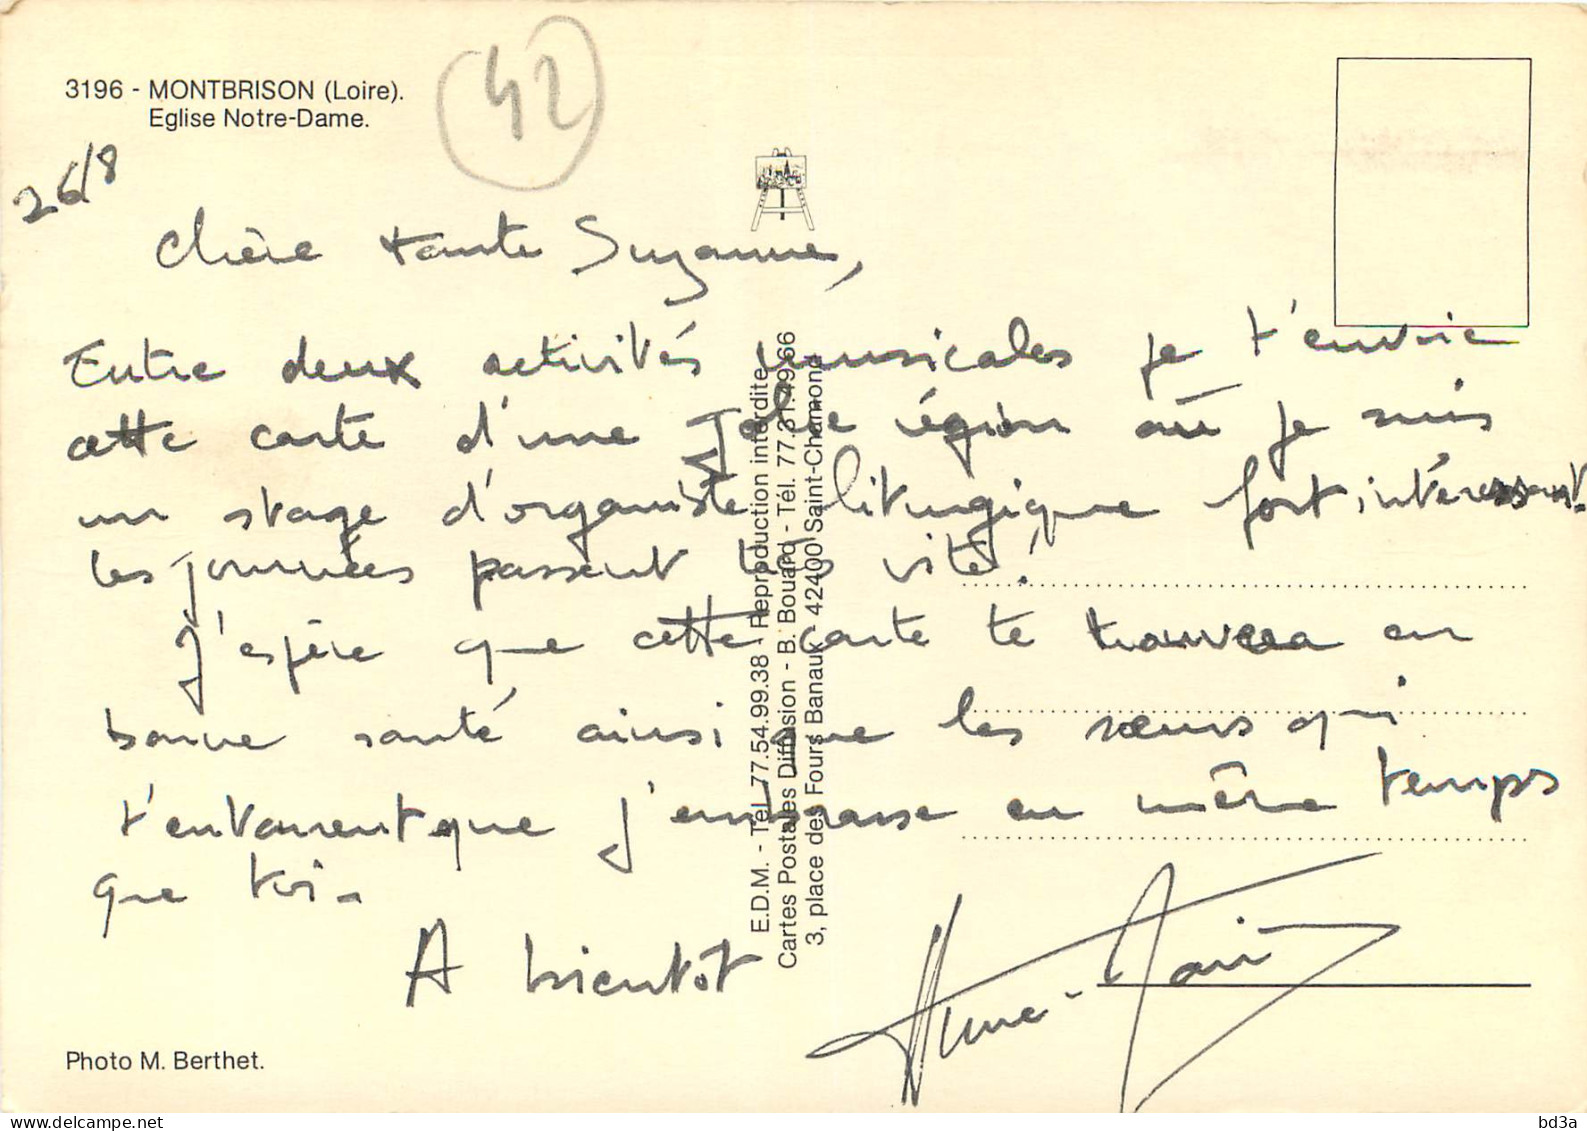 3196 - MONTBRISON (Loire).
Eglise Notre-Dame.
42
26/8
Chère tante Suzanne,
Entre deux activités musicales je t'envoie
cette carte d'une jolie région où je suis
un stage d'organiste liturgique fort intéressant.
les journées passent très vite!
J'espère que cette carte te trouvera en
bonne santé ainsi que les sœurs qui
t'entourent que j'embrasse en même temps
que toi.
A bientôt
Anne-Marie
E.D.M. - Tél. 77.54.99.38 - Reproduction interdite
Cartes Postales Diffusion - B. Bouard - Tél. 77.31.4966
3, place des Fours Banaux - 42400 Saint-Chamond
Photo M. Berthet.
delcampe.net
bd3a